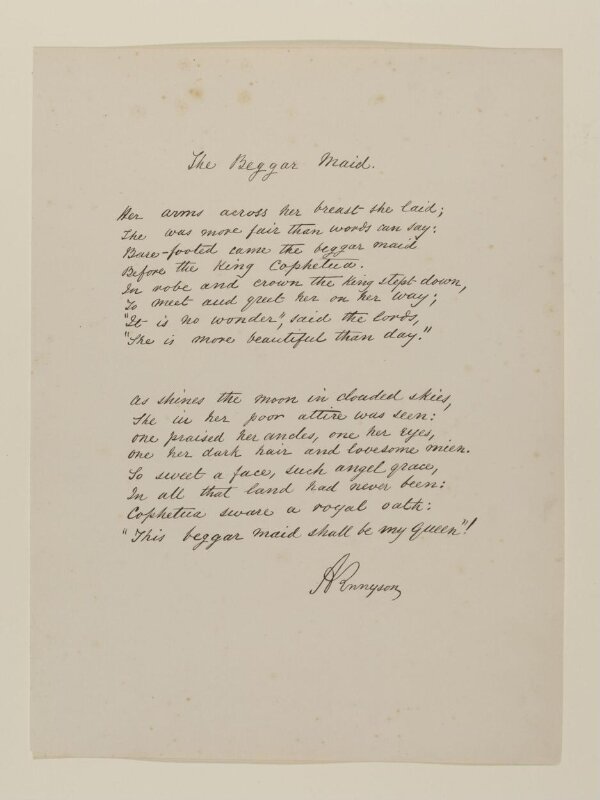 The Beggar Maid.
Her arms across her breast she laid;
She was more fair than words can say:
Bare-footed came the beggar maid
Before the King Cophetua.
In robe and crown the King stept down,
To meet and greet her on her way;
"It is no wonder", said the lords,
"She is more beautiful than day."
As shines the moon in clouded skies,
She in her poor attire was seen:
One praised her ancles, one her eyes,
One her dark hair and lovesome mien.
So sweet a face, such angel grace,
In all that land had never been:
Cophetua sware a royal oath:
"This beggar maid shall be my Queen"!
ATennyson